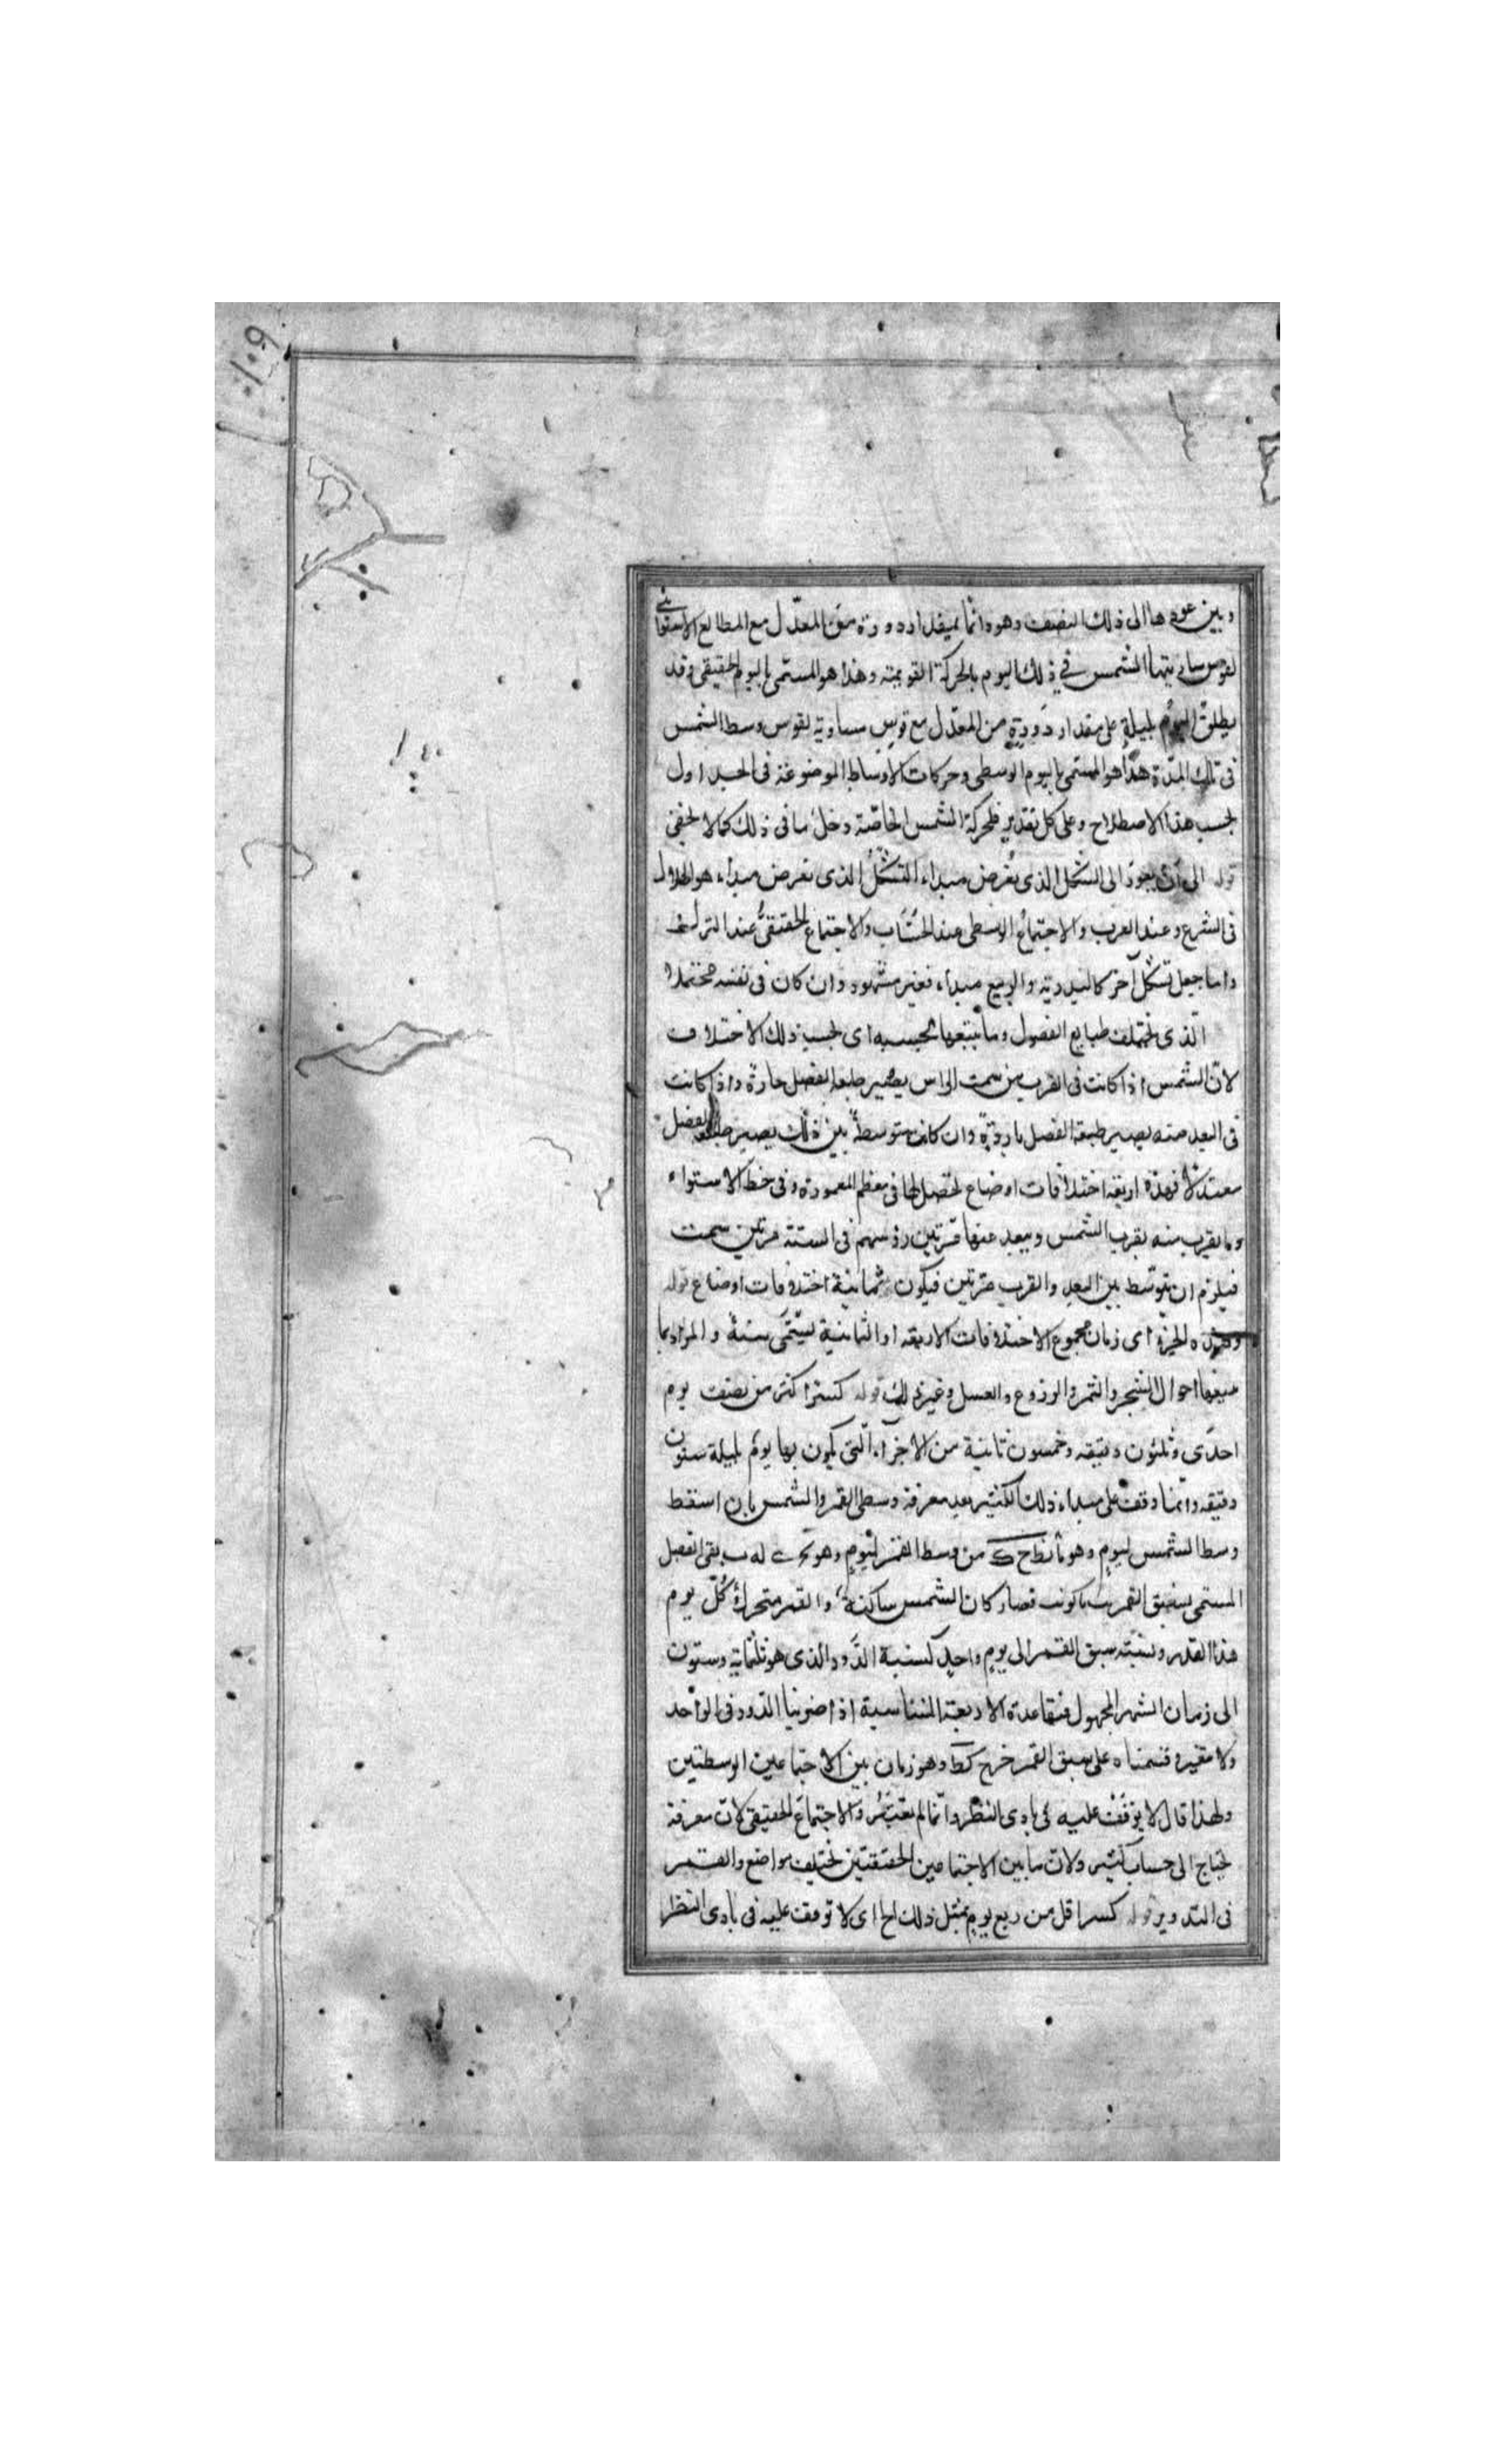 ١٠٩
١٠٠
وبين عودها الى ذلك النصف وهو دائما بمقدار دورة من المعدّل مع المطالع الاستوائية
لقوس سارتها الشمس في ذلك اليوم بالحركة التقويمية وهذا هو المسمى باليوم الحقيقي وقد
يطلق اليوم بليلة على مقدار دَورةٍ من المعدّل مع قوسٍ مساوية لقوس وسط الشمس
في تلك المدّة هذا هو المسمى باليوم الوسطى وحركات الاوساط الموضوعة فى الجداول
بحسب هذا الاصطلاح وعلى كل تقدير فلحركة الشمس الخاصّة دخل ما فى ذلك كما لا يخفى
قوله الى ان يعود الى الشكل الذى يُفرض مبداء التشكّل الذى يفرض مبداء هو الهلال
فى الشرع وعند العرب والاجتماع الوسطى عند الحُسّاب والاجتماع الحقيقىّ عند الترك
واما جعل تشكّل آخر كالبدرية والربيع مبداء فغير مشهور وان كان فى نفسه محتملا
الّذى يختلف طبايع الفصول وما يتبعها بحسبه اى بحسب ذلك الاختلاف
لان الشمس اذا كانت فى القرب من سمت الراس يصير طبعه الفصل حارة واذا كانت
فى البعد منه يصير طبيعة الفصل باردة وان كانت متوسطة بين ذلك يصير الفصل
معتدلا فهذه اربعة اختلافات اوضاع تحصل لها فى معظم المعمورة وفى خط الاستواء
وما يقرب منه يقرب الشمس ويبعد عنها مرّتين رؤسهم فى السنة مرتين سمت
فيلزم ان يتوسّط بين البعد والقرب مرّتين فيكون ثمانية اختلافات اوضاع قوله
وهذه الجزء اى زمان مجموع الاختلافات الاربعه او الثمانية يسمّى سنة والمراد بما
يتبعها احوال الشجر والثمر والزروع والعسل وغير ذلك قوله كسرا اكثر من نصف يوم
احدى وثلثون دقيقه وخمسون ثانية من الاجزآء الّتى يكون بها يومٌ بليلة ستون
دقيقه وانّما وقف على مبداء ذلك الكثير بعد معرفة وسطى القمر والشمس بان اسقط
وسط الشمس ليومٍ وهو نط ح ك من وسط القمر ليومٍ وهو يج ى له ب بقى الفصل
المسمى بسبق القمر فصار كان الشمس ساكنة، والقمر متحرك كُلّ يوم
هذا القدر ونسبَته سبق القمر الى يومٍ واحدٍ كنسبة الدَّور الذى هو ثلثماية وستون
الى زمان الشهر المجهول فبقاعدة الاربعة المتناسبة اذا ضربنا الدّور فى الواحد
ولا مغيره وقسمناه على سبق القمر خرج كط وهو زمان بين الاجتماعين الوسطيّين
ولهذا قال لا يوقف عليه فى بادى النظر وانّما لم يعتبرُ والاجتماعَ الحقيقى لان معرفة
يحتاج الى حساب كثير ولان ما بين الاجتماعين الحقيقيّين يختلف مواضع والقمر
فى التدوير قوله كسرا اقل من ربع يومٍ بمثل ذلك الخ اى لا توقف عليه فى بادى النظر